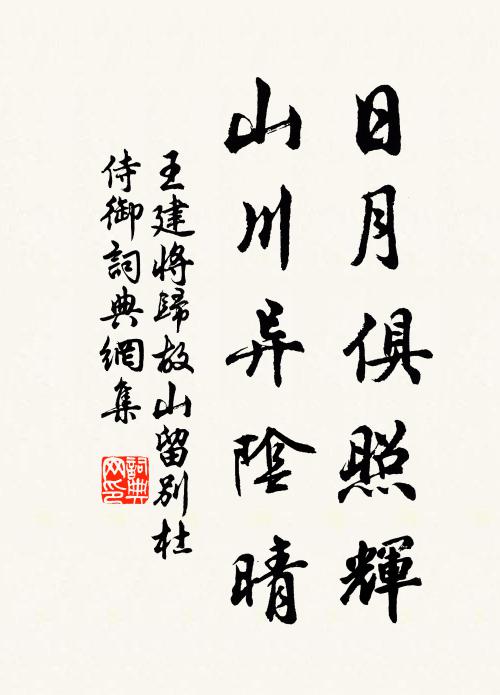 日月俱照輝
山川异陰晴
王建將歸故山留別杜
侍御詞典網集
詞典网印